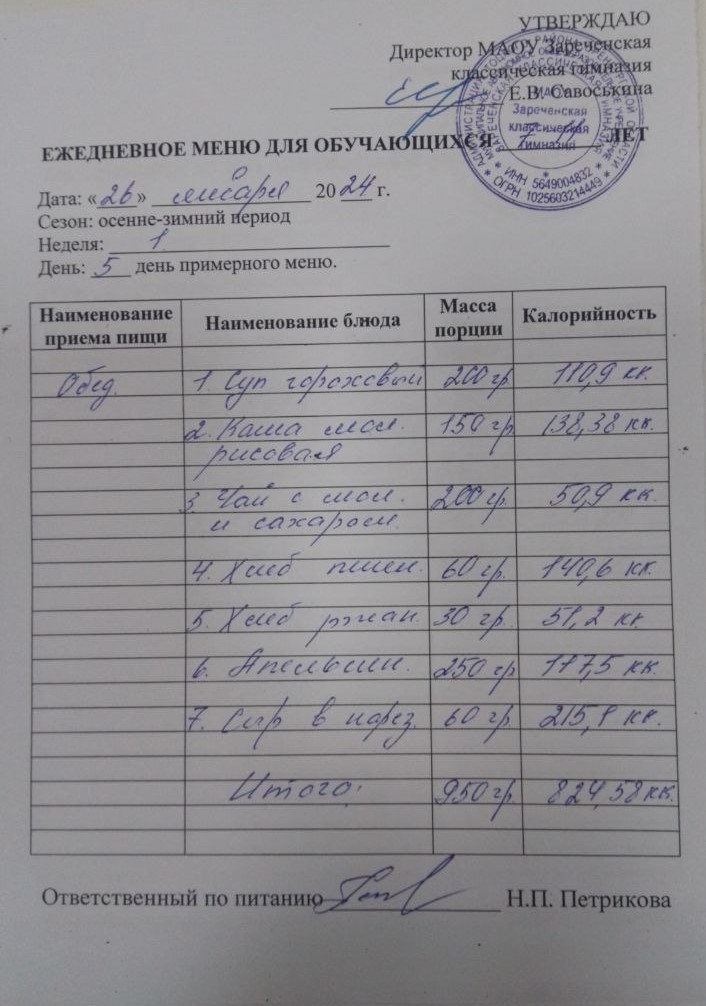 УТВЕРЖДАЮ
Директор МАОУ Зареченская
классическая гимназия
Е.В. Савоськина
МАОУ
Зареченская
классическая
гимназия
* ИНН 5649004832 *
* ОГРН 1025603214449 *
ЕЖЕДНЕВНОЕ МЕНЮ ДЛЯ ОБУЧАЮЩИХСЯ ЛЕТ
Дата: «26» января 2024 г.
Сезон: осенне-зимний период
Неделя: 1
День: 5 день примерного меню.
Наименование приема пищи Наименование блюда Масса порции Калорийность
Обед 1. Суп гороховый 200 гр 110,9 кк.
2. Каша мол. 150 гр 138,38 кк.
рисовая
3. Чай с мол. 200 гр 50,9 кк.
и сахаром.
4. Хлеб пшен. 60 гр. 140,6 кк.
5. Хлеб ржан. 30 гр. 51,2 кк
6. Апельсин. 250 гр 117,5 кк.
7. Сыр в нарез. 60 гр. 215,1 кк.
Итого: 950 гр. 824,58 кк.
Ответственный по питанию Н.П. Петрикова